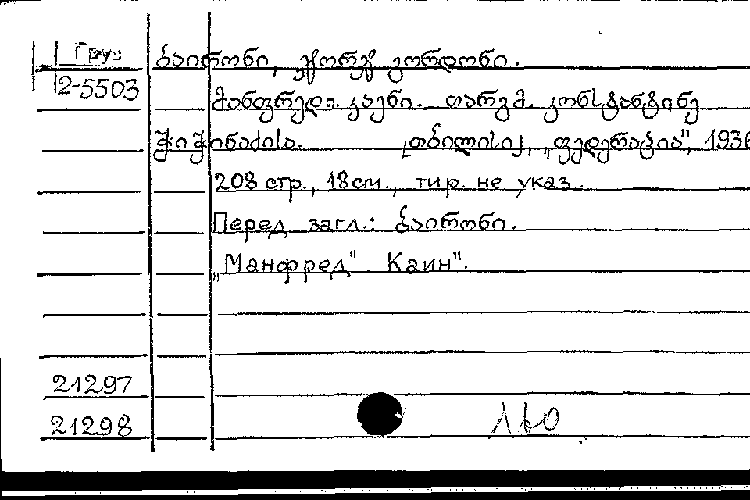 Груз
ბაირონი, ჟორჟ გორდონი.
2-5503
მანფრედ. კაენი. თარგმ. კონსტანტინე
ჭიჭინაძისა. თბილისი, „ფედერაცია", 1936
208 стр., 18см., тир. не указ.
Перед загл.: ბაირონი.
„Манфред". Каин".
21297
21298